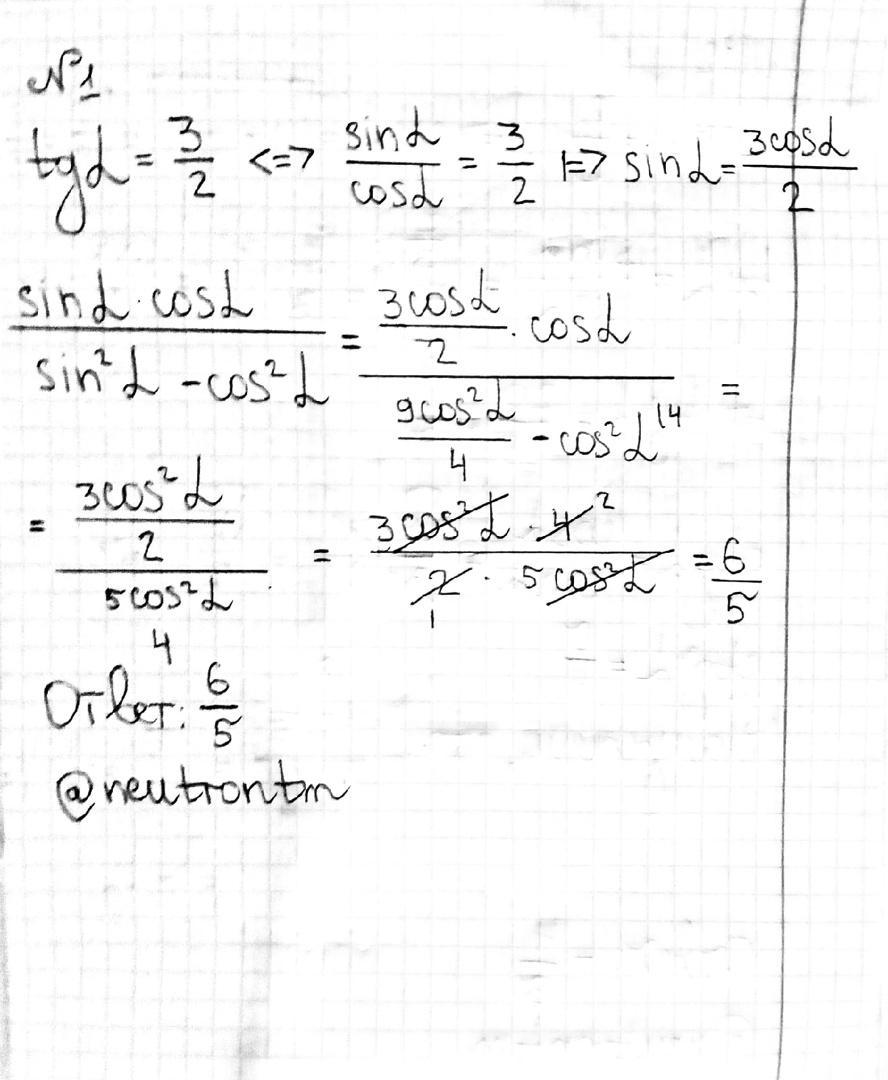 №1
tgα = 3/2 <=> sinα/cosα = 3/2 |=> sinα = 3cosα/2
sinα·cosα/(sin²α - cos²α) = (3cosα/2 · cosα)/(9cos²α/4 - cos²α^{14}) =
= (3cos²α/2)/(5cos²α/4) = (3cos²α · 4 ²)/(2 · 5cos²α 1) = 6/5
Ответ: 6/5
@neutrontm